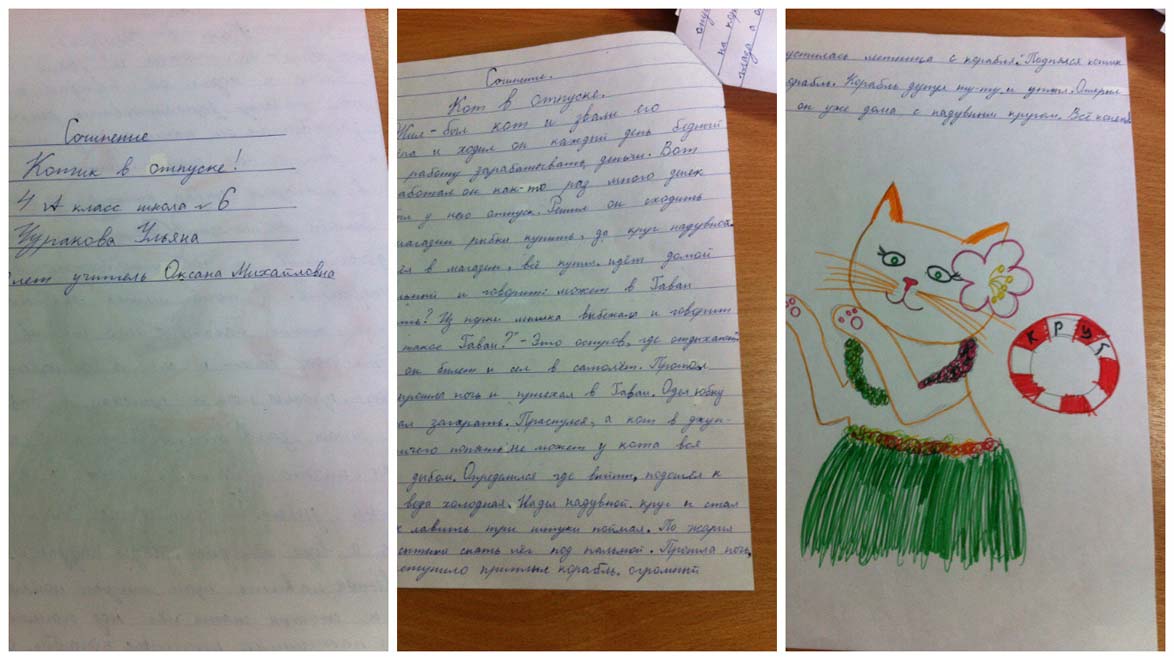 Сочинение
Котик в отпуске!
4 А класс школа №6
Чуракова Ульяна
лет учитель Оксана Михайловна
Сочинение.
Кот в отпуске.
Жил-был кот и звали его
и ходил он каждый день бедный
работу зарабатывать деньги. Вот
работал он как-то раз много денег
у него отпуск. Решил он сходить
магазин рыбки купить, да круг надувной.
в магазин, всё купил идёт домой
и говорит: может в Гаваи
? Из норки мышка выбежала и говорит
такое Гаваи?" - Это остров, где отдыхают
он билет и сел в самолёт. Прошол
прошла ночь и приехал в Гаваи. Одел юбку
загарать. Проснулся, а кот в джун-
ничего понять не может у кота вся
дыбом. Определился где выйти, подошёл к
вода холодная. Надел надувной круг и стал
лавить три штуки поймал. По жарил
спать лёг под пальмой. Прошла ночь,
приплыл корабль. огромный
устилась лестница с корабля. Поднялся котик
корабль. Корабль дунул ту-ту и уплыл. Открыл
он уже дома с надувным кругом. Всё
КРУГ